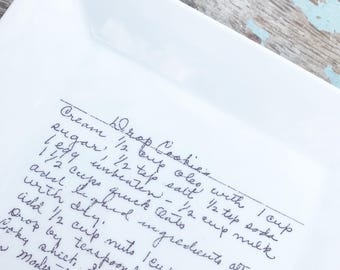 Drop Cookies
Cream 1/2 cup oleo with 1 cup
sugar, 1/2 tsp salt, 1/2 tsp soda
1 egg unbeaten - 1/2 cup milk
1 1/2 cups quick oats
add liquid ingredients
with dry.
add 1/2 cup nuts 1 cup
Drop by teaspoon